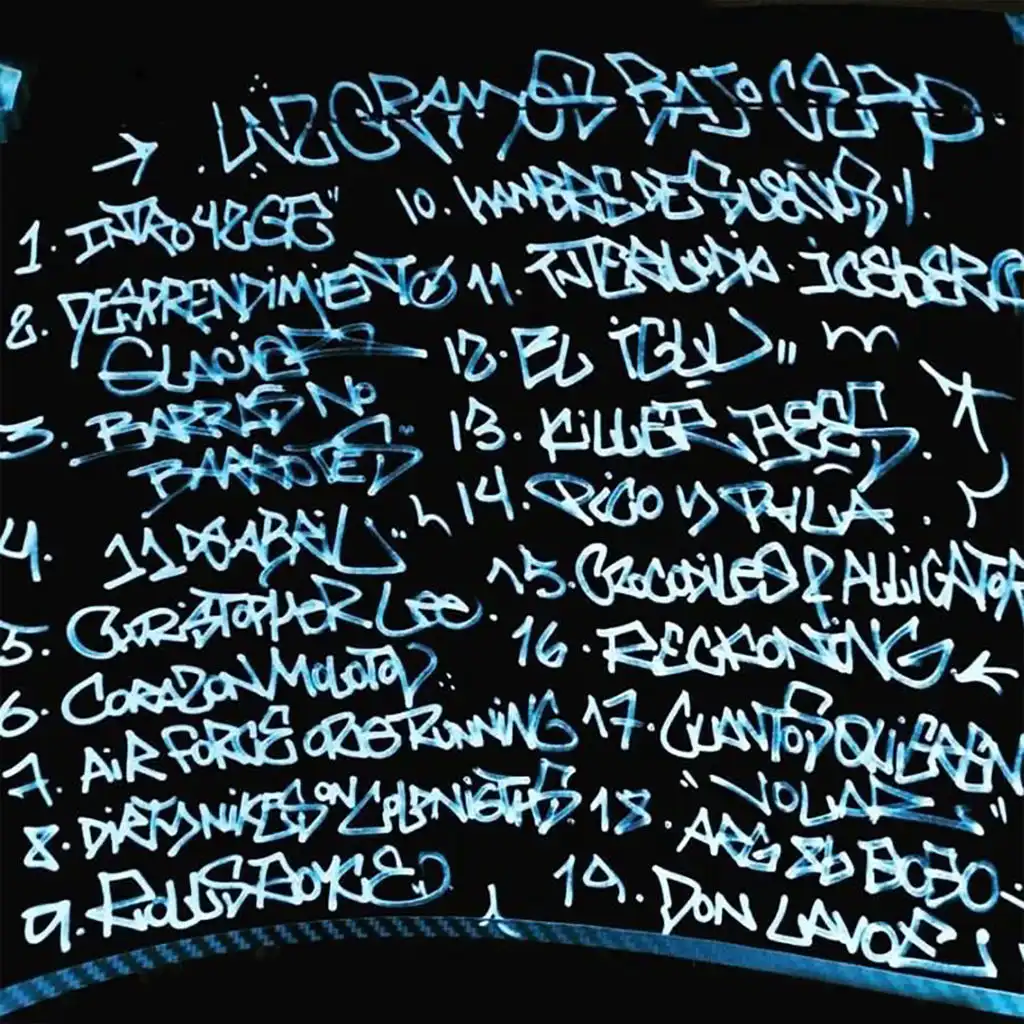 LUZ GRAMOS BAJO CERO.
1. INTRO 4REGE"
2. DESPRENDIMIENTO
GLACIAR
3. BARRAS NO
BARROTES"
4. 11 DE ABRIL"
5. CHRISTOPHER LEE.
6. CORAZON MOLOTOV
7. AIR FORCE ONE RUNNING
8. DIRTY NIKES ON COLD NIGTHS
9. ROLLS ROYCE
10. HAMBRE DE SUEÑOS
11. INTERLUDIO ICEBERG
12. EL IGLU"
13. KILLER BEES.
14. PICO Y PALA.
15. CROCODILES & ALLIGATOR
16. RECKONING
17. CUANTOS QUIEREN
"VOLAR"
18. ARG 86 BOBO
19. DON LAVOE